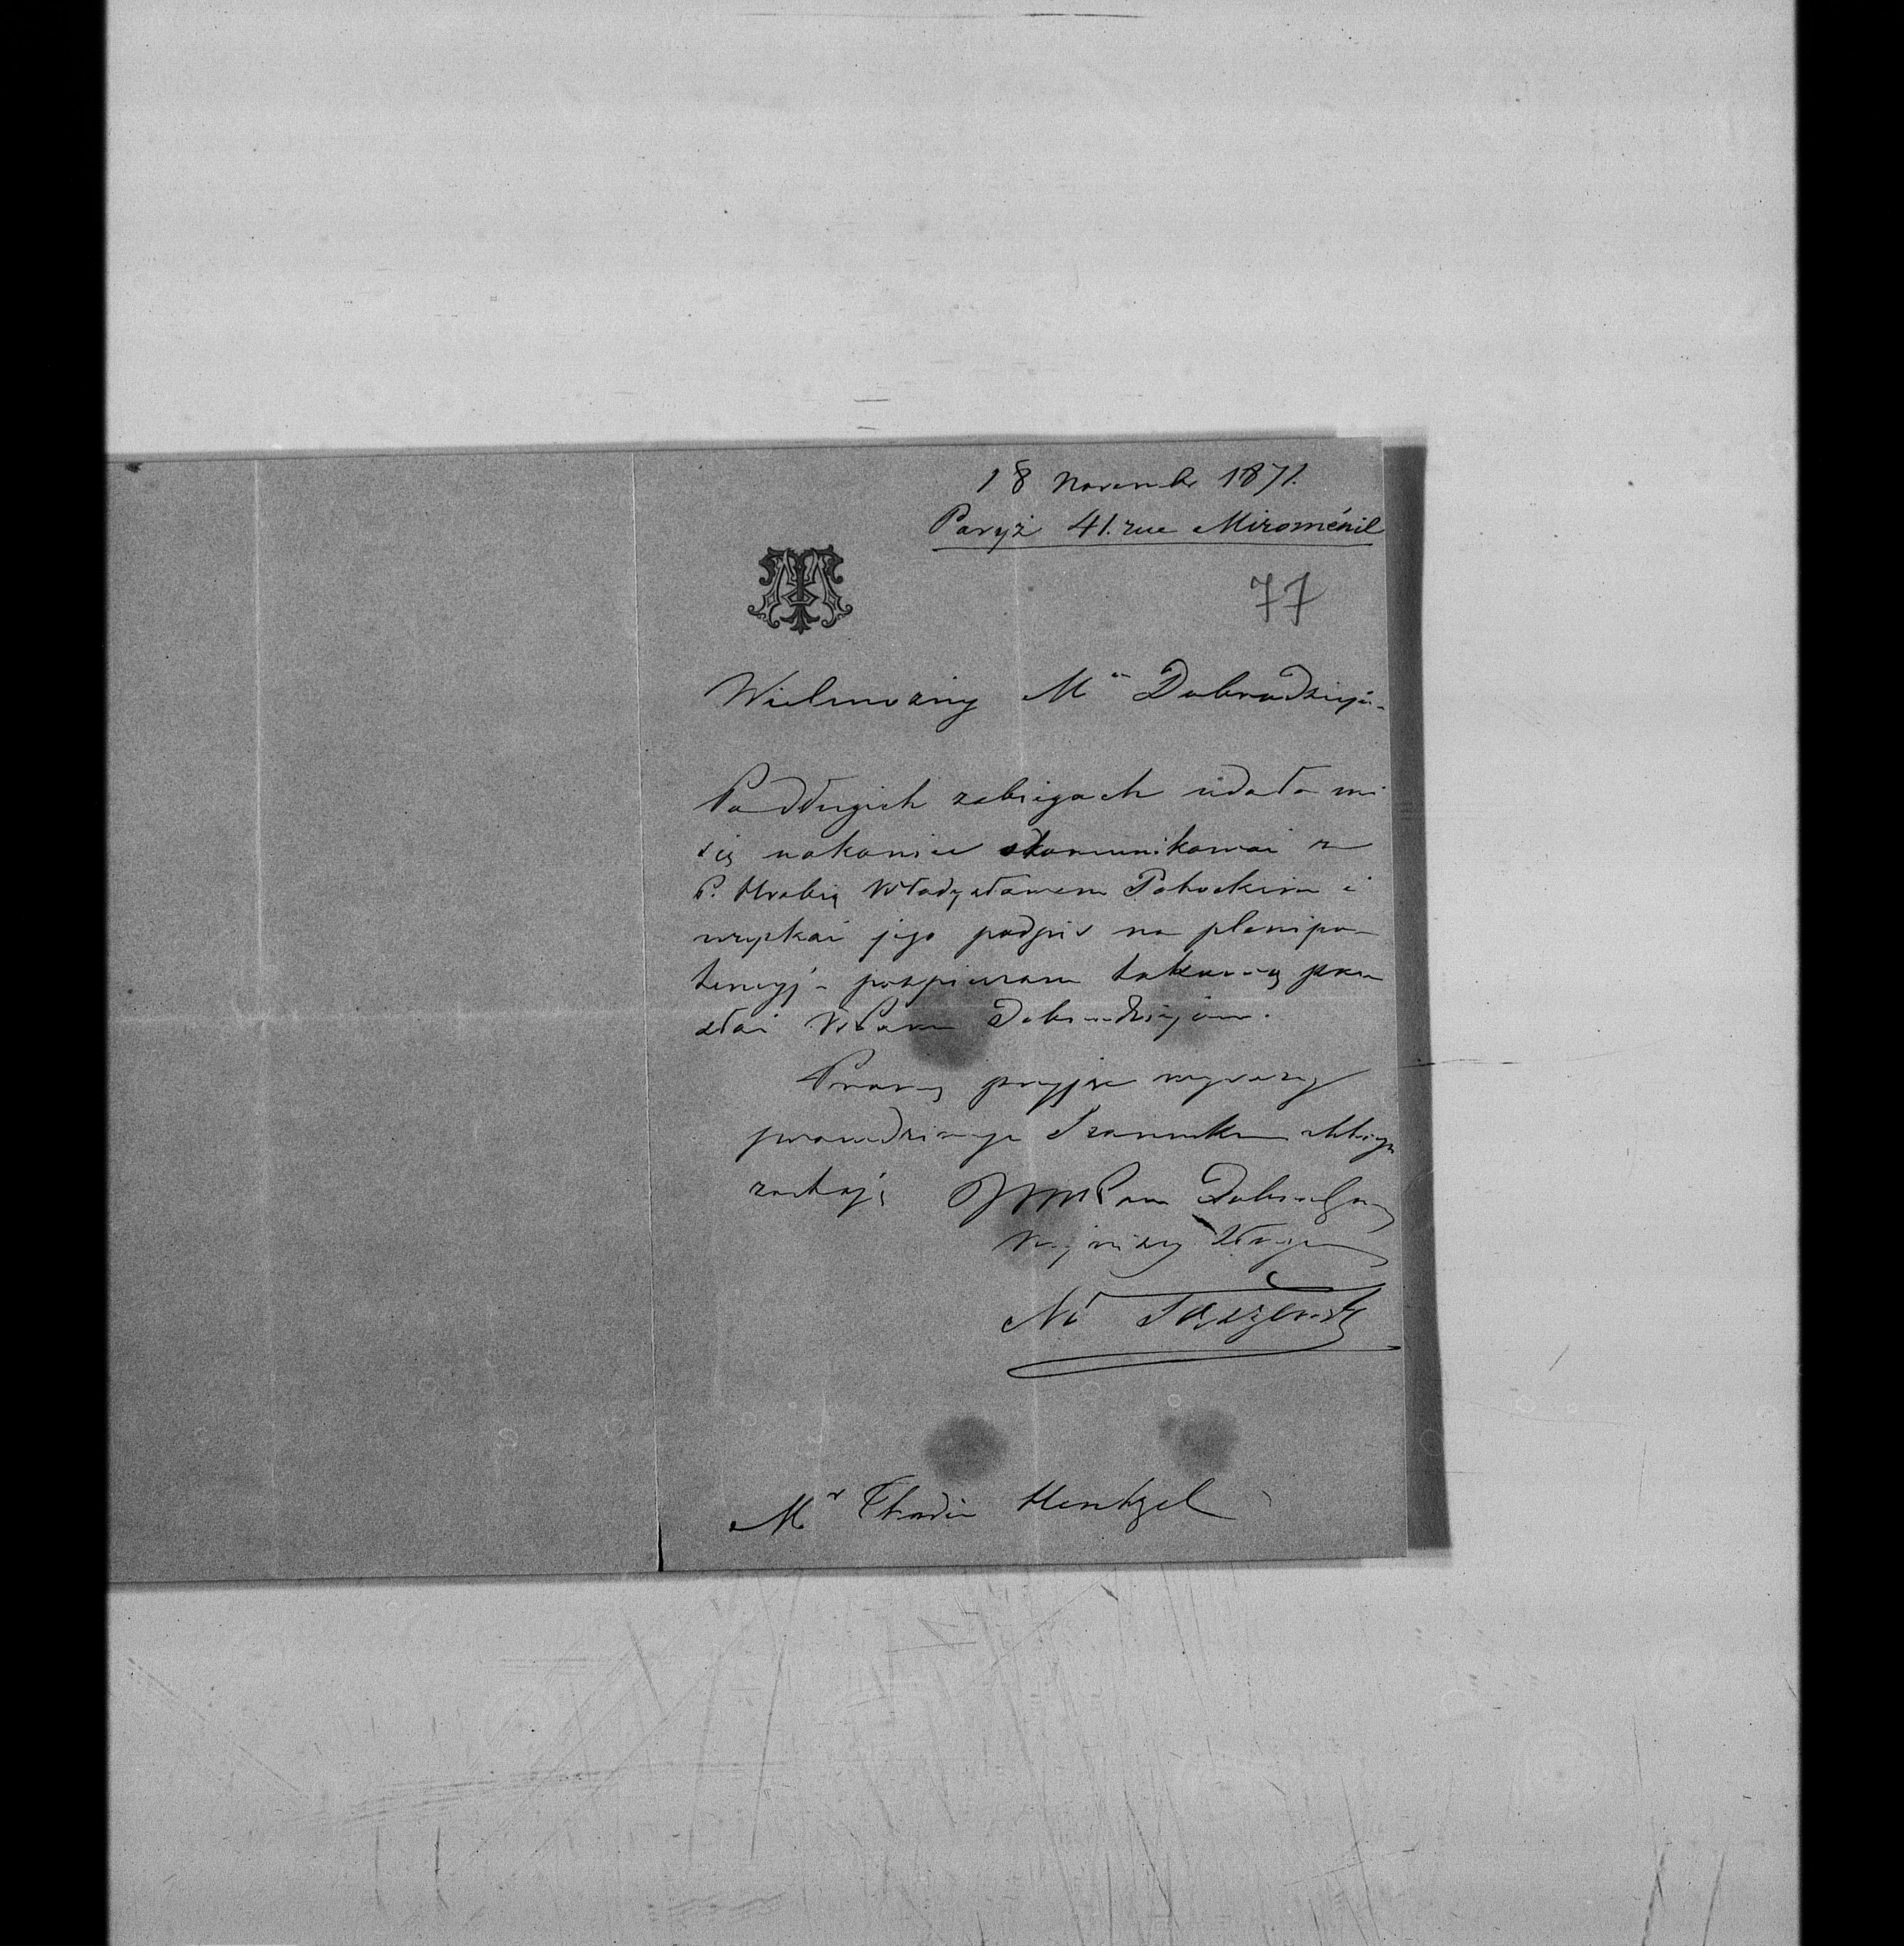 18 Novembr 1871.
Paryż 41. rue Miroménil
77
Wielmożny M Dobrodzieju.
Po długich zabiegach udało mi
się nakoniec skomunikować z
P. Hrabią Władysławem Potockim i
uzyskać jego podpis na plenipo-
tencyj - pospieszam takową prze
słać WPanu Dobrodziejowi.
Proszę przyjąć wyrazy
prawdziwego Szanunku z którym
zostaję WWPana Dobrodzieja
Najniższy Sługa
Mr Thadée Hentzel